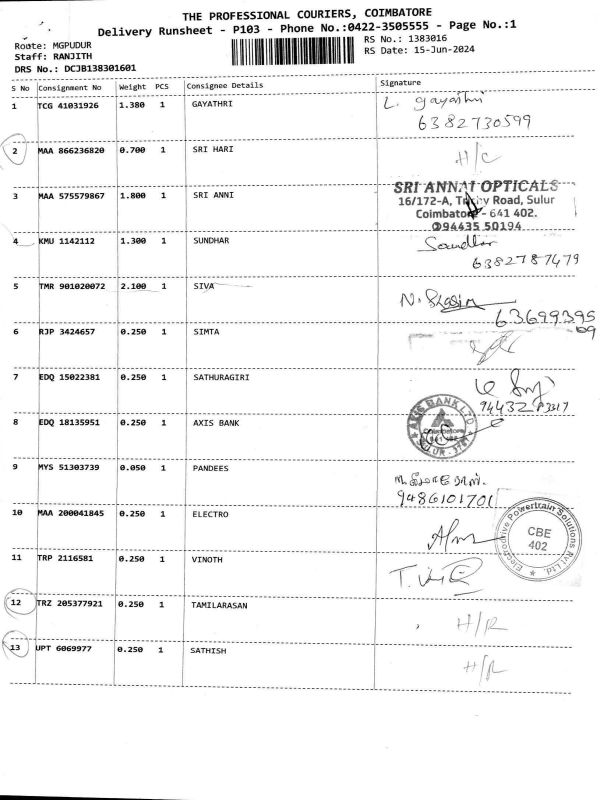 THE PROFESSIONAL COURIERS, COIMBATORE
Delivery Runsheet - P103 - Phone No.:0422-3505555 - Page No.:1
Route: MGPUDUR
Staff: RANJITH
DRS No.: DCJB138301601
RS No.: 1383016
RS Date: 15-Jun-2024
S No Consignment No Weight PCS Consignee Details Signature
1 TCG 41031926 1.380 1 GAYATHRI L. gayathri
6382730599
2 MAA 866236820 0.700 1 SRI HARI H/C
3 MAA 575579867 1.800 1 SRI ANNI SRI ANNAI OPTICALS
16/172-A, Trichy Road, Sulur
Coimbatore - 641 402.
94435 50194
4 KMU 1142112 1.300 1 SUNDHAR Soundhar
6382787479
5 TMR 901020072 2.100 1 SIVA
63699395
09
6 RJP 3424657 0.250 1 SIMTA
7 EDQ 15022381 0.250 1 SATHURAGIRI
94432 83317
8 EDQ 18135951 0.250 1 AXIS BANK AXIS BANK LTD
Coimbatore
9 MYS 51303739 0.050 1 PANDEES
9486101701
10 MAA 200041845 0.250 1 ELECTRO
Electrodrive Powertrain Solutions Pvt Ltd.
CBE
402
11 TRP 2116581 0.250 1 VINOTH
12 TRZ 205377921 0.250 1 TAMILARASAN H/R
13 UPT 6069977 0.250 1 SATHISH H/R